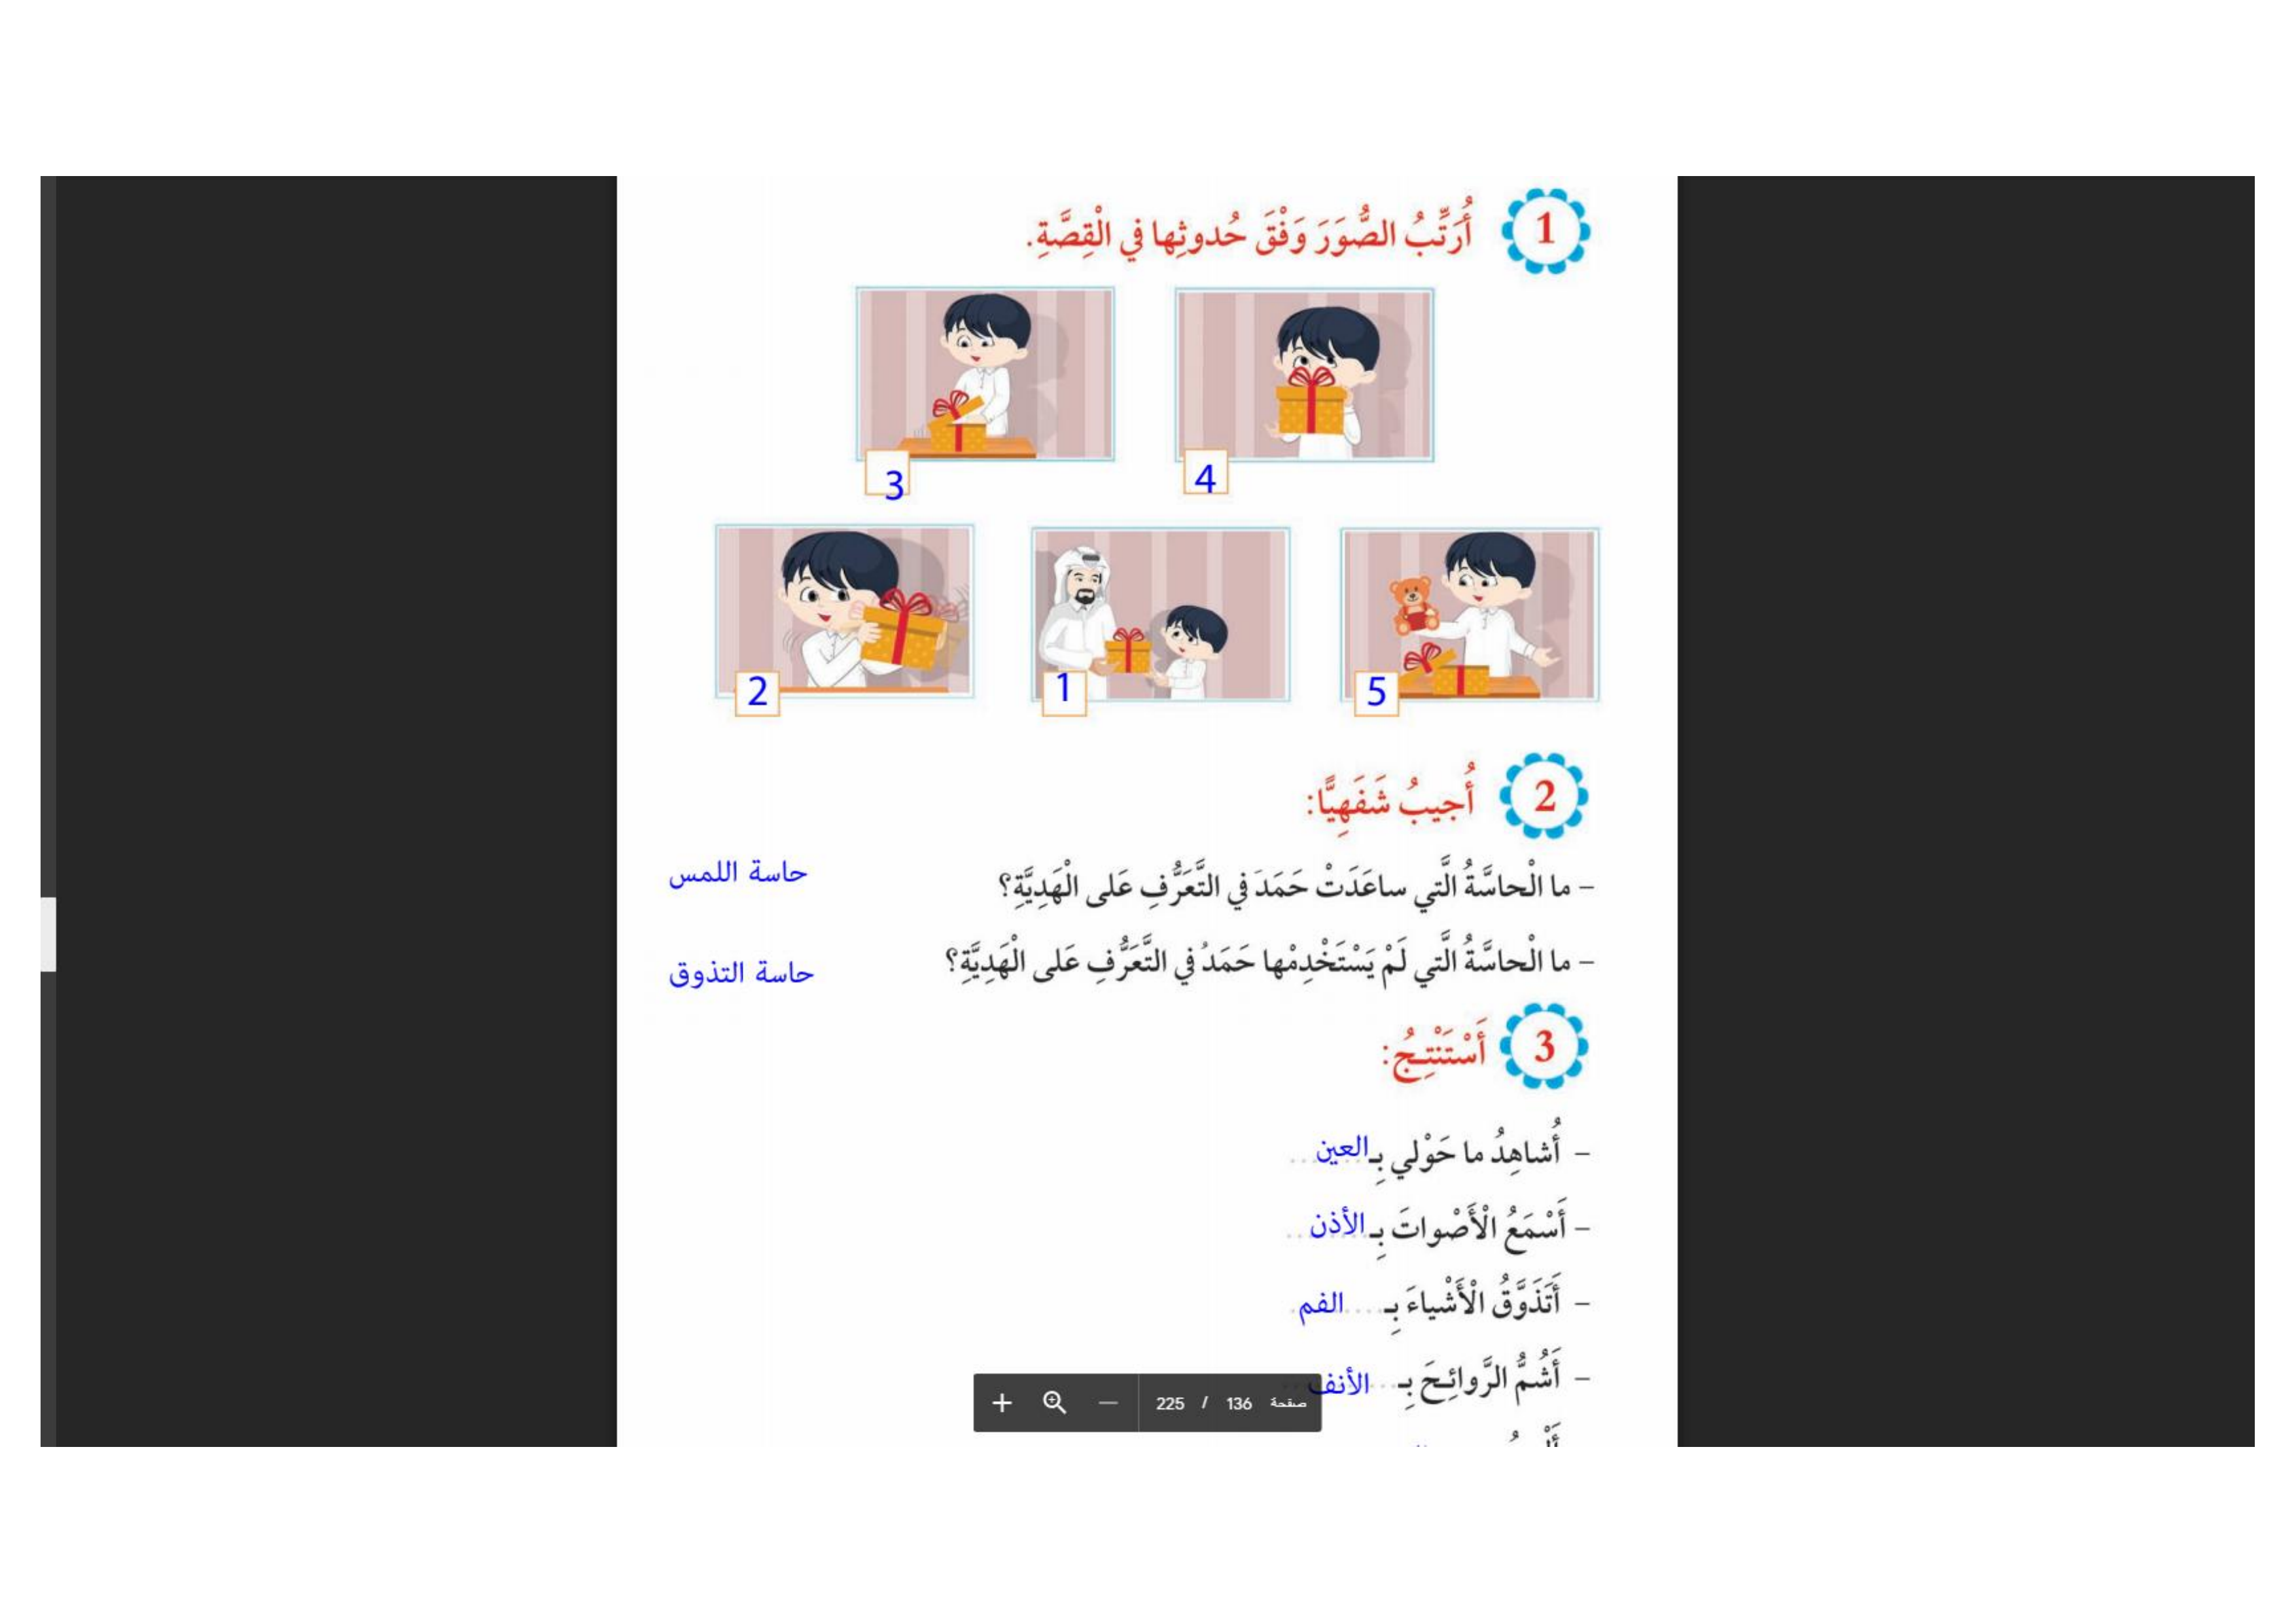 1 أُرَتِّبُ الصُّوَرَ وَفْقَ حُدوثِها في الْقِصَّةِ.
4
3
5
1
2
2 أُجيبُ شَفَهِيًّا:
– ما الْحاسَّةُ الَّتي ساعَدَتْ حَمَدَ في التَّعَرُّفِ عَلى الْهَدِيَّةِ؟ حاسة اللمس
– ما الْحاسَّةُ الَّتي لَمْ يَسْتَخْدِمْها حَمَدُ في التَّعَرُّفِ عَلى الْهَدِيَّةِ؟ حاسة التذوق
3 أَسْتَنْتِجُ:
– أُشاهِدُ ما حَوْلي بِـ العين
– أَسْمَعُ الْأَصْواتَ بِـ الأذن
– أَتَذَوَّقُ الْأَشْياءَ بِـ الفم
– أَشُمُّ الرَّوائِحَ بِـ الأنف
صفحة 136 / 225